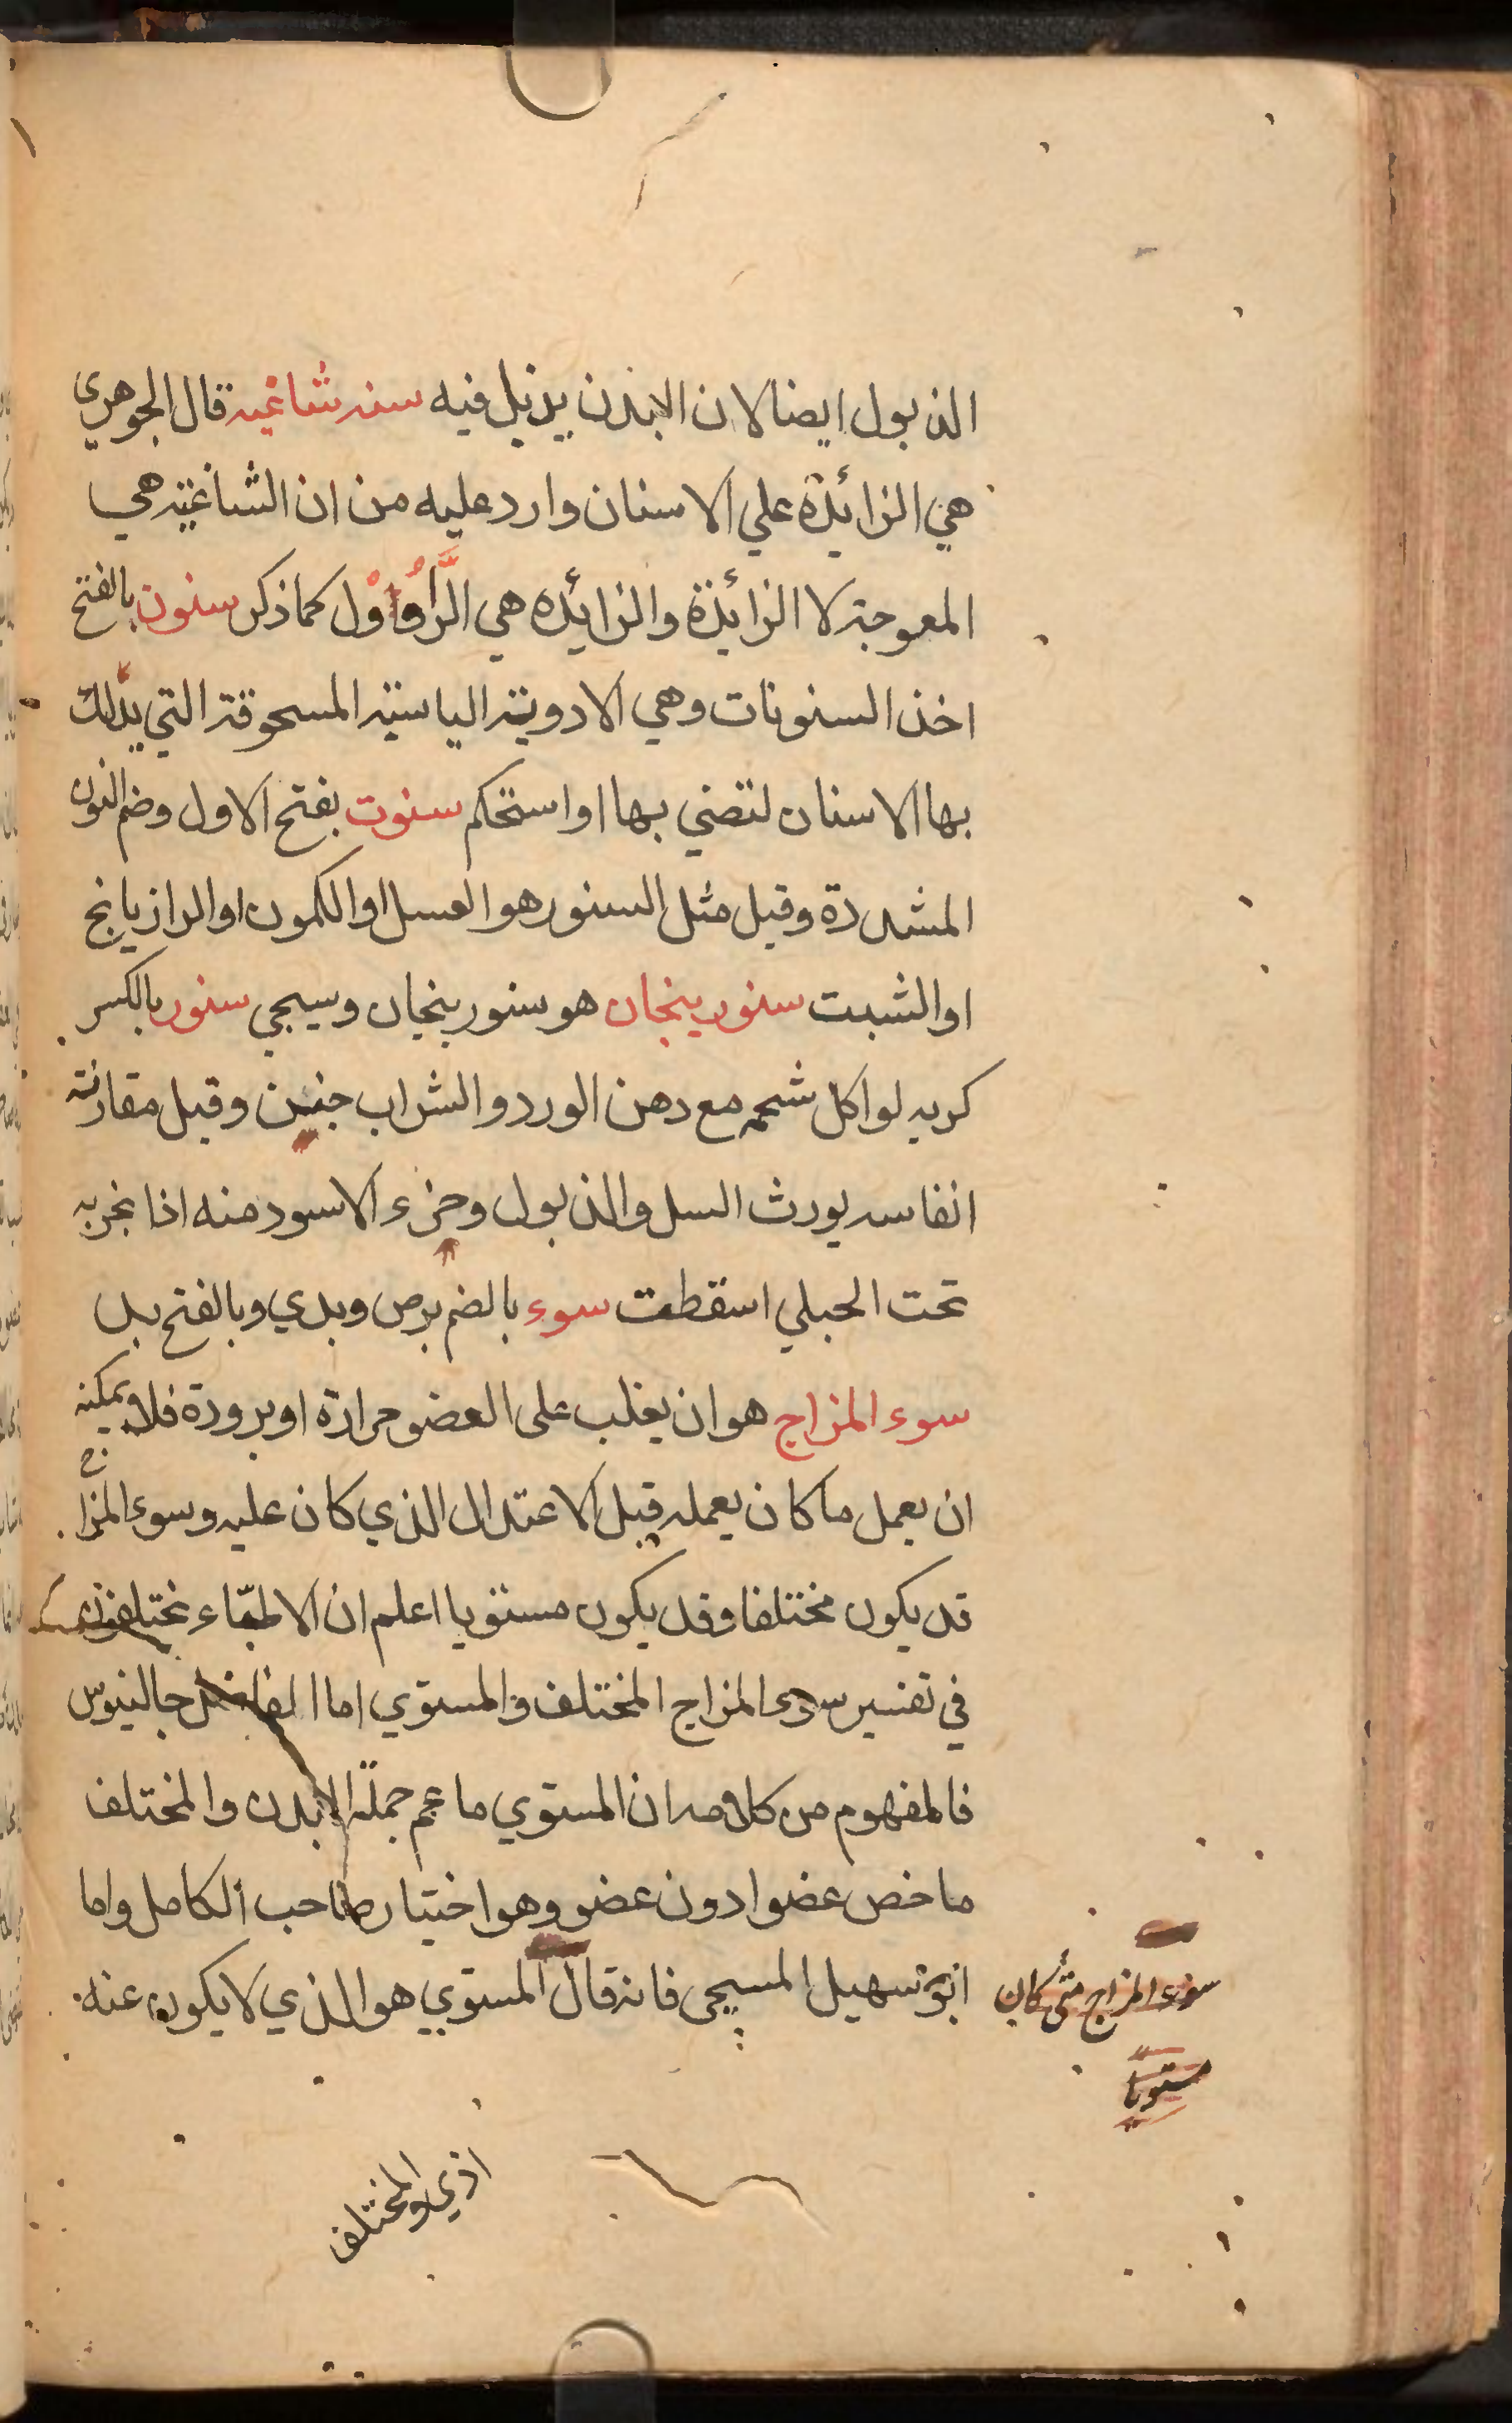 الذبول ايضا لان الابدن يذبل فيه سنه شاغيه قال الجوهري
هي الزائدة علي الاسنان وارد عليه من ان الشاغيه هي
المعوجة لا الزائدة والزائده هي الرَّاوُوْل كما ذكر سنون بالفتح
اخذ السنونات وهي الادوية الياسية المسحوقة التي يدلك
بها الاسنان لتضي بها او استحكم سنوت بفتح الاول وضم النون
المشددة وقيل مثل السنور هو العسل او الكمون او الرازيانج
او الشبت سنورينجان هو سنورينجان وسيجي سنور بالكسر
كربه لو اكل شحمه مع دهن الورد والشراب جنين وقيل مقارنة
انفاسه يورث السل والذبول وخرء الاسود منه اذا بخر به
تحت الحبلي اسقطت سوء بالضم برص وبدي وبالفتح بد
سوء المزاج هو ان يغلب على العضو حرارة او برودة فلا يمكنه
ان يعمل ما كان يعمله قبل الاعتدال الذي كان عليه وسوء المزاج
قد يكون مختلفا وقد يكون مستويا اعلم ان الاطباء مختلفون
في تفسير سوء المزاج المختلف والمستوي اما الفاضل جالينوس
فالمفهوم من كلامه ان المستوي ما عم جملة الابدن والمختلف
ما خص عضوا دون عضو وهو اختيار صاحب الكامل واما
ابو سهيل المسيحي فانه قال المستوي هو الذي لا يكون عنه
سوء المزاج متى كان
مستويا
اذي والمختلف